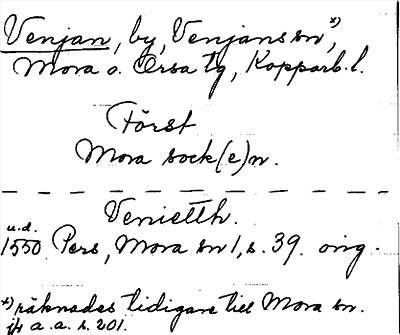 Venjan, by, Venjans sn x),
Mora o. Orsa tg, Kopparb. l.
Först
Mora sock(e)n.
Venietth.
u.d.
1550 Pers, Mora sn 1, s. 39. orig.
x) räknades tidigare till Mora sn.
jfr a.a. s. 201.